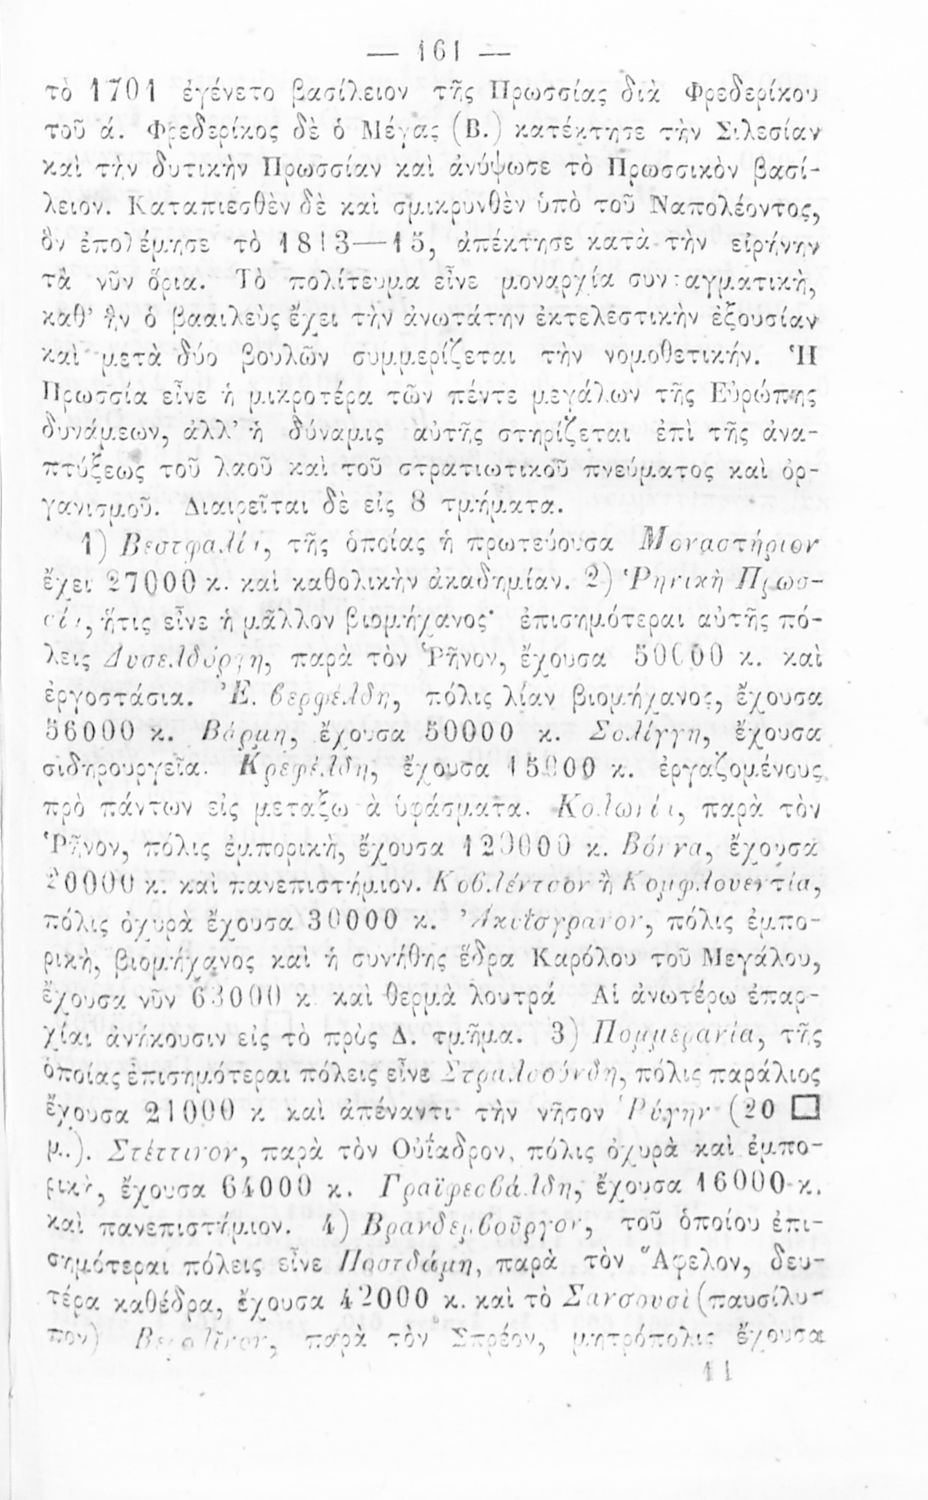 — 161 —
τὸ 1701 ἐγένετο βασίλειον τῆς Πρωσσίας διὰ Φρεδερίκου
τοῦ ά. Φρεδερίκος δὲ ὁ Μέγας (Β.) κατέκτησε τὴν Σιλεσίαν
καὶ τὴν δυτικὴν Πρωσσίαν καὶ ἀνύψωσε τὸ Πρωσσικὸν βασί-
λειον. Καταπιεσθὲν δὲ καὶ σμικρυνθὲν ὑπὸ τοῦ Ναπολέοντος,
ὃν ἐπολέμησε τὸ 1813—15, ἀπέκτησε κατὰ τὴν εἰρήνην
τὰ νῦν ὅρια. Τὸ πολίτευμα εἶνε μοναρχία συνταγματικὴ,
καθ’ ἣν ὁ βααιλεὺς ἔχει τὴν ἀνωτάτην ἐκτελεστικὴν ἐξουσίαν
καὶ μετὰ δύο βουλῶν συμμερίζεται τὴν νομοθετικήν. Ἡ
Πρωσσία εἶνε ἡ μικροτέρα τῶν πέντε μεγάλων τῆς Εὐρώπης
δυνάμεων, ἀλλ’ ἡ δύναμις αὐτῆς στηρίζεται ἐπὶ τῆς ἀνα-
πτύξεως τοῦ λαοῦ καὶ τοῦ στρατιωτικοῦ πνεύματος καὶ ὀρ-
γανισμοῦ. Διαιρεῖται δὲ εἰς 8 τμήματα.
1) Βεστφαλία, τῆς ὁποίας ἡ πρωτεύουσα Μοναστήριον
ἔχει 27000 κ. καὶ καθολικὴν ἀκαδημίαν. 2) Ῥηνικὴ Πρωσ-
σία, ἥτις εἶνε ἡ μᾶλλον βιομήχανος· ἐπισημότεραι αὐτῆς πό-
λεις Δυσελδόρφη, παρὰ τὸν Ῥῆνον, ἔχουσα 50000 κ. καὶ
ἐργοστάσια. Ἐλβερφέλδη, πόλις λίαν βιομήχανος, ἔχουσα
56000 κ. Βάρμη, ἔχουσα 50000 κ. Σολίγγη, ἔχουσα
σιδηρουργεῖα. Κρεφέλδη, ἔχουσα 15000 κ. ἐργαζομένους
πρὸ πάντων εἰς μεταξωτὰ ὑφάσματα. Κολωνία, παρὰ τὸν
Ῥῆνον, πόλις ἐμπορικὴ, ἔχουσα 120000 κ. Βόννα, ἔχουσα
20000 κ. καὶ πανεπιστήμιον. Κοβλέντσον ἢ Κομφλουεντία,
πόλις ὀχυρὰ ἔχουσα 30000 κ. Ἀκυΐσγρανον, πόλις ἐμπο-
ρικὴ, βιομήχανος καὶ ἡ συνήθης ἕδρα Καρόλου τοῦ Μεγάλου,
ἔχουσα νῦν 63000 κ καὶ θερμὰ λουτρά Αἱ ἀνωτέρω ἐπαρ-
χίαι ἀνήκουσιν εἰς τὸ πρὸς Δ. τμῆμα. 3) Πομμερανία, τῆς
ὁποίας ἐπισημότεραι πόλεις εἶνε Στραλσούνδη, πόλις παράλιος
ἔχουσα 21000 κ καὶ ἀπέναντι τὴν νῆσον Ῥύγην (20 □
μ.). Στέττινον, παρὰ τὸν Οὐΐαδρον, πόλις ὀχυρὰ καὶ ἐμπο-
ρικὴ, ἔχουσα 64000 κ. Γραϊφεσβάλδη, ἔχουσα 16000 κ.
καὶ πανεπιστήμιον. 4) Βρανδεμβοῦργον, τοῦ ὁποίου ἐπι-
σημότεραι πόλεις εἶνε Ποστδάμη, παρὰ τὸν Ἄφελον, δευ-
τέρα καθέδρα, ἔχουσα 42000 κ. καὶ τὸ Σανσουσὶ (παυσίλυ-
πον) Βερολῖνον, παρὰ τὸν Σπρέον, μητρόπολις ἔχουσα
11